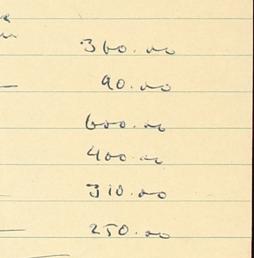 360.00
90.00
600.00
400.00
310.00
250.00